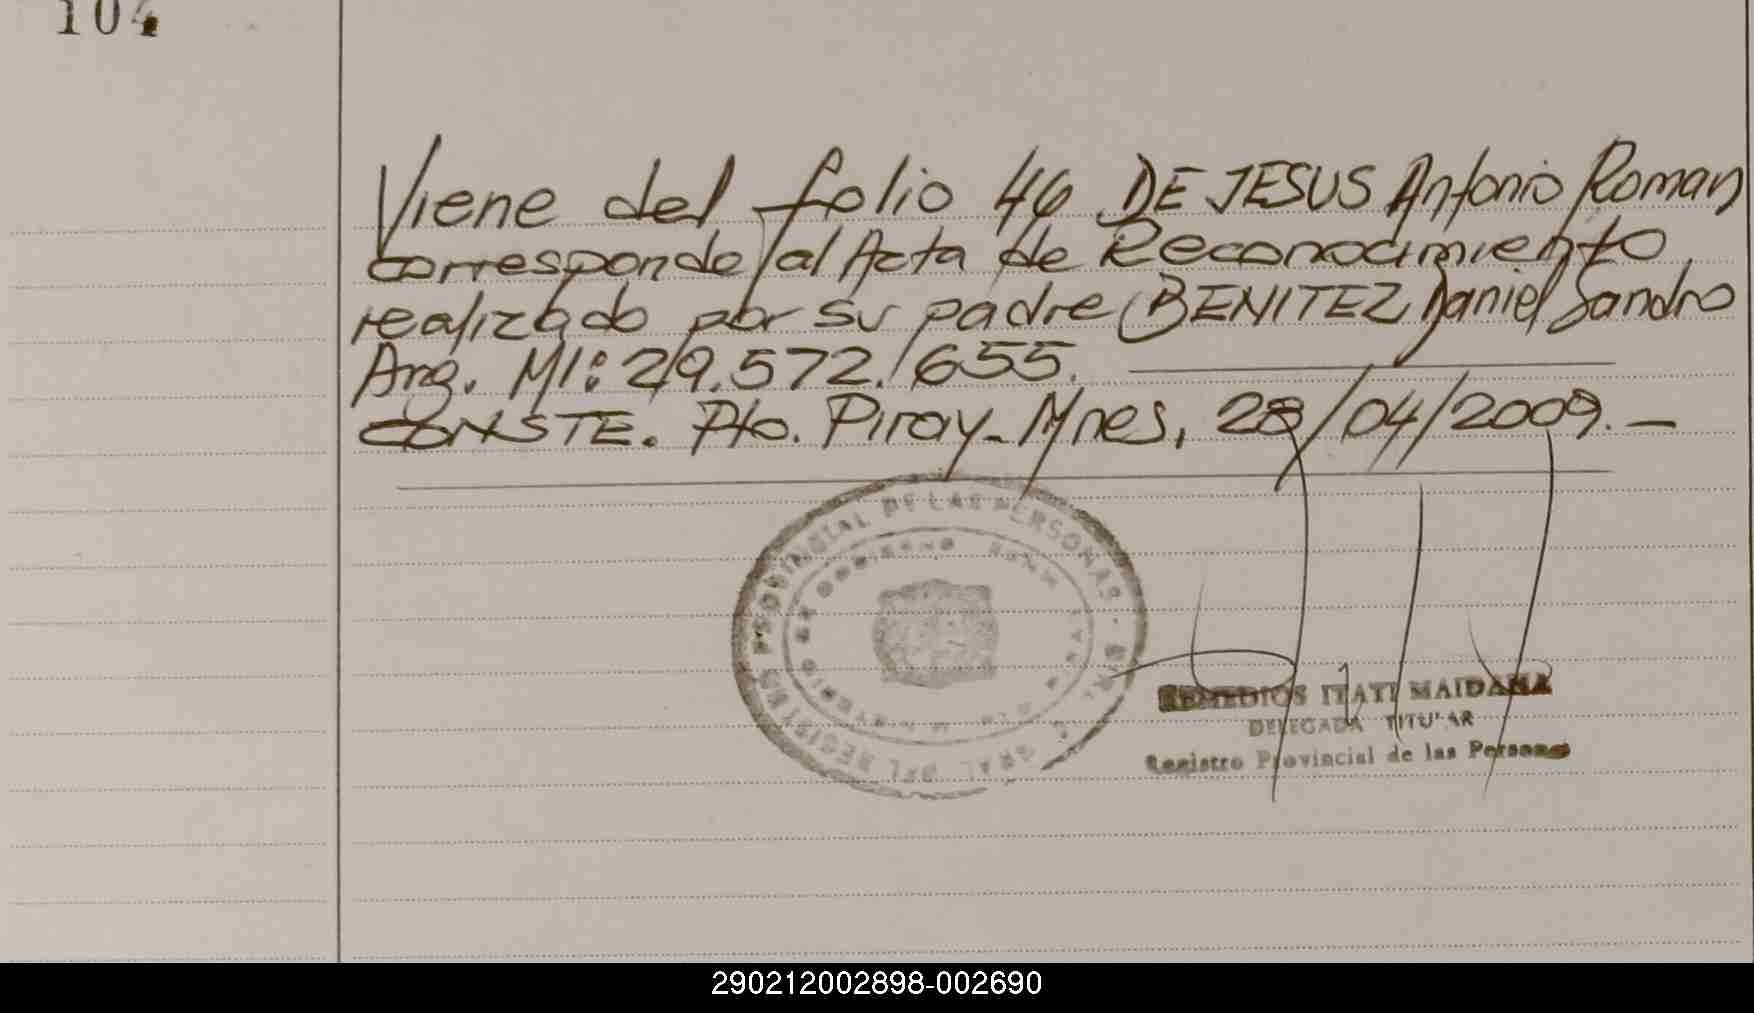 104
Viene del folio 46 DE JESUS Antonio Roman
corresponde al Acta de Reconocimiento
realizado por su padre BENITEZ Daniel Sandro
Arg. MI: 29.572.655.
CONSTE. Pto. Piray-Mnes, 28/04/2009.-
PROVINCIAL DE LAS PERSONAS
GRAL DEL REGISTRO
MINISTERIO DE GOBIERNO
REMEDIOS ITATI MAIDANA
DELEGADA TITULAR
Registro Provincial de las Personas
290212002898-002690